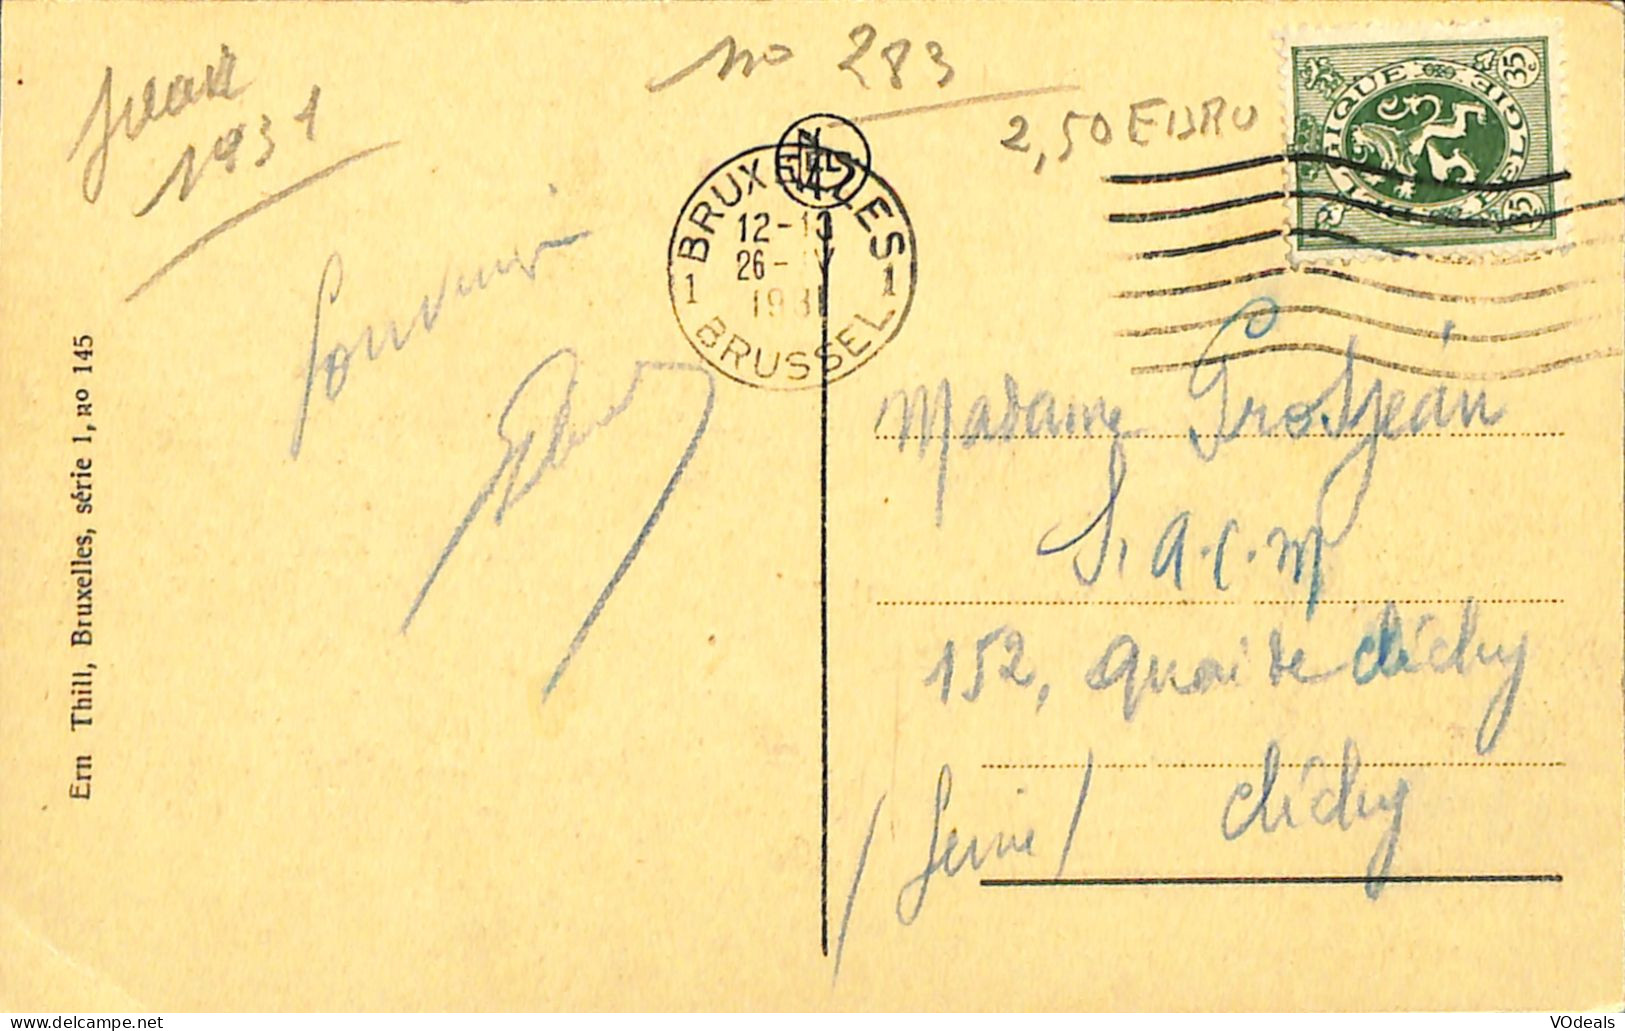 1931
no 283
2,50 EURO
BRUXELLES
12-13
26-IV
1931
1 1
BRUSSEL
BELGIQUE
BELGIE
35c
35c
Souvenir
Madame Grosjean
S. A. C. M
152, Quai de Clichy
Clichy
(Seine)
Ern Thill, Bruxelles, série 1, no 145
VOdeals